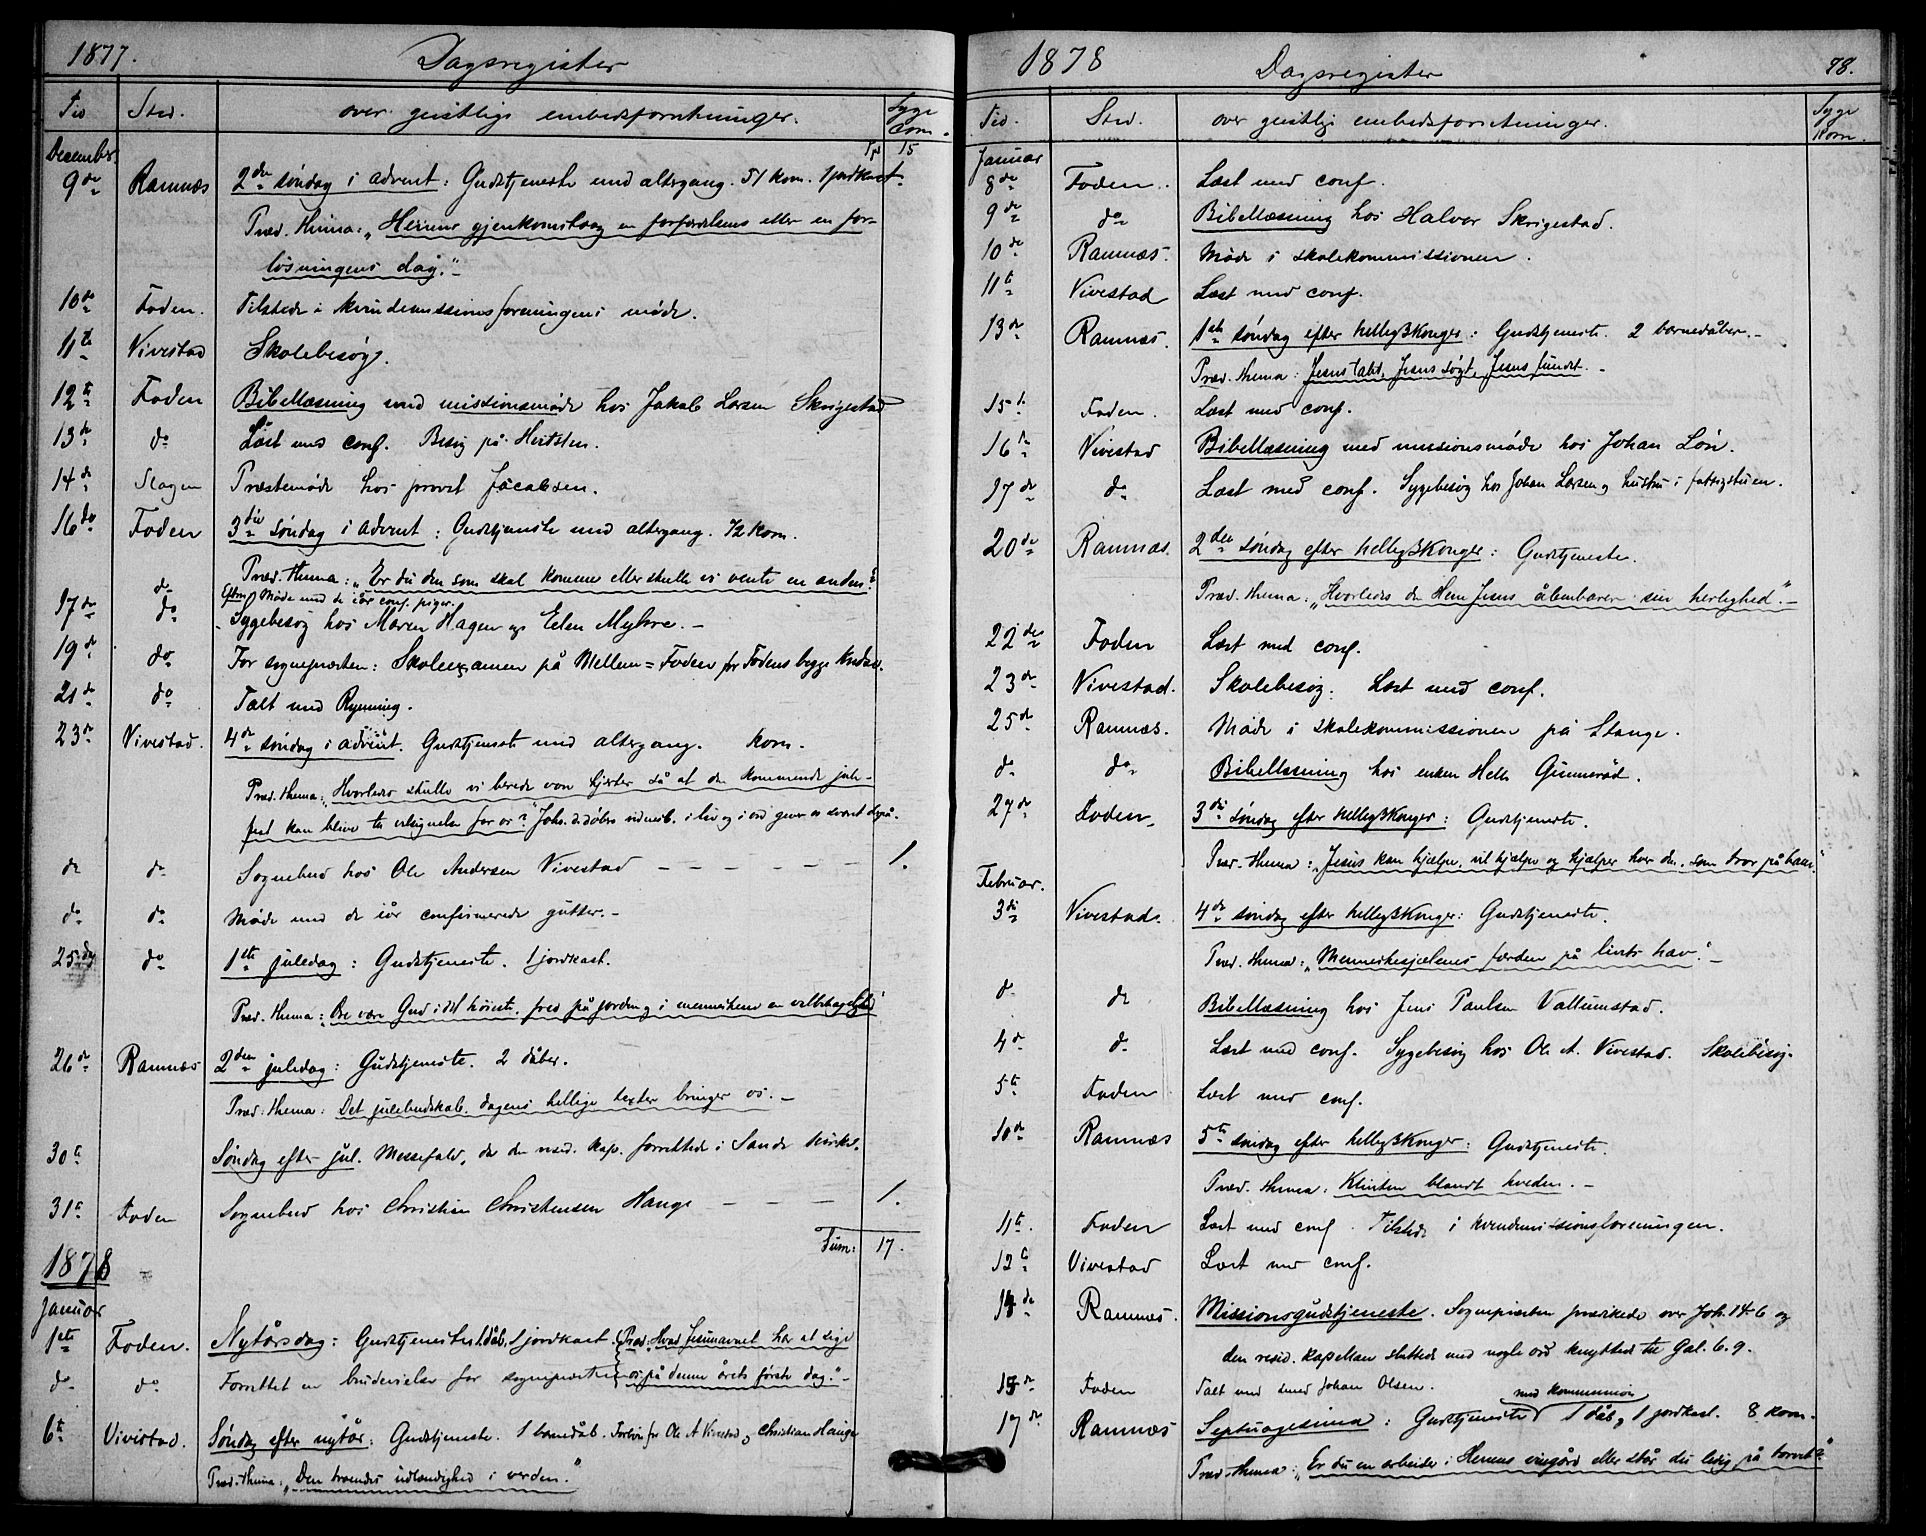 1877. Dagsregister
Tid Sted. over geistlige embedsforretninger. Syge Com.
December. Tp 15
9de Ramnæs 2den søndag i advent: Gudstjeneste med altergang. 51 kom. 1 jordkast.
Præd. thema: "Herrens gjenkomstdag en forfærdelsens eller en for-
løsningens dag."
10de Foden. Tilstede i kvindemissionsforeningens møde.
11te Vivestad Skolebesøg.
12te Foden Bibellæsning med missionsmøde hos Jakob Larsen Skrigestad
13de do Læst med conf. Besøg på Hertsten.
14de Slagen Præstemøde hos provst Jacobsen.
16de Foden 3die søndag i advent: Gudstjeneste med altergang. 72 kom.
Præd. thema: "Er du den som skal komme eller skulle vi vente en anden?"
do Møde med de iår conf. piger.
17de do Sygebesøg hos Maren Hagen og Elen Myhre.
19de do For sognepræsten: Skoleexamen på Mellem=Foden for Fodens begge kredse.
21de do Talt med Rynning.
23de Vivestad. 4de søndag i advent. Gudstjeneste med altergang. kom.
Præd. thema: "Hvorledes skulle vi berede vore hjerter så at den kommende jule-
fest kan blive til velsignelse for os?" Johs. d. døbers vidnesb. i liv og i ord giver os svaret derpå.
do do Sognebud hos Ole Andersen Vivestad 1.
do do Møde med de iår confirmerede gutter.
25de do 1ste juledag: Gudstjeneste. 1 jordkast.
Præd. thema: Ære være Gud i det høieste, fred på jorden og i menneskene en velbehagelighed
26de Ramnæs 2den juledag: Gudstjeneste. 2 dåber.
Præd. thema: Det julebudskab, dagens hellige texter bringer os.
30te Søndag efter jul. Messefald, da den resid. kap. forrettede i Sande kirke.
31te Foden Sognebud hos Christian Christensen Hauge 1.
Sum: 17.
1878
Januar
1ste Foden. Nytårsdag: Gudstjeneste 1 dåb. 1 jordkast. Præd: Hvad Jesunavnet har at sige
os på denne årets første dag."
do do Forrettet en brudevielse for sognepræsten
6te Vivestad. Søndag efter nytår: Gudstjeneste. 1 barnedåb. Forbøn for Ole A Vivestad og Christian Hauge
Præd. thema: "Den troendes udlændighed i verden."
1878 Dagsregister 78.
Tid. Sted. over geistlige embedsforretninger. Syge Kom.
Januar
8de Foden. Læst med conf.
9de do Bibellæsning hos Halvor Skrigestad.
10de Ramnæs. Møde i skolekommissionen.
11te Vivestad Læst med conf.
13de Ramnæs. 1ste søndag efter hellig3konger: Gudstjeneste. 2 barnedåber.
Præd. thema: Jesus tabt, Jesus søgt, Jesus fundet.
15de Foden. Læst med conf.
16de Vivestad Bibellæsning med missionsmøde hos Johan Løn.
17de do Læst med conf. Sygebesøg hos Johan Larsen og hustru i fattigstuen.
20de Ramnæs. 2den søndag efter hellig3konger: Gudstjeneste.
Præd. thema: "Hvorledes den Herre Jesus åbenbarer sin herlighed."
22de Foden Læst med conf.
23de Vivestad. Skolebesøg. Læst med conf.
25de Ramnæs. Møde i skolekommissionen på Stange.
do do Bibellæsning hos enken Helle Gunnerød.
27de Foden. 3die søndag efter hellig3konger: Gudstjeneste.
Præd. thema: "Jesus kan hjælpe, vil hjælpe og hjælper hver den, som tror på ham."
Februar.
3die Vivestad. 4de søndag efter hellig3konger: Gudstjeneste.
Præd. thema: "Menneskesjælenes færden på livets hav."
do do Bibellæsning hos Jens Paulsen Vallumstad.
4de do Læst med conf. Sygebesøg hos Ole A. Vivestad. Skolebesøg.
5te Foden Læst med conf.
10de Ramnæs 5te søndag efter hellig3konger: Gudstjeneste.
Præd. thema: Klinten blandt hveden.
11te. Foden Læst med conf. Tilstede i kvindemissionsforeningen.
12te Vivestad Læst med conf.
14de Ramnæs. Missionsgudstjeneste. Sognepræsten prædikede over Joh. 14-6 og
den resid. kapellan sluttede med nogle ord knyttede til Gal. 6.9.
15de Foden Talt med smed Johan Olsen.
17de Ramnæs Septuagesima: Gudstjeneste med kommunion 1 dåb og 1 jordkast. 8 kom.
Præd. thema: "Er du en arbeider i Herrens vingård eller står du ledig på torvet?"